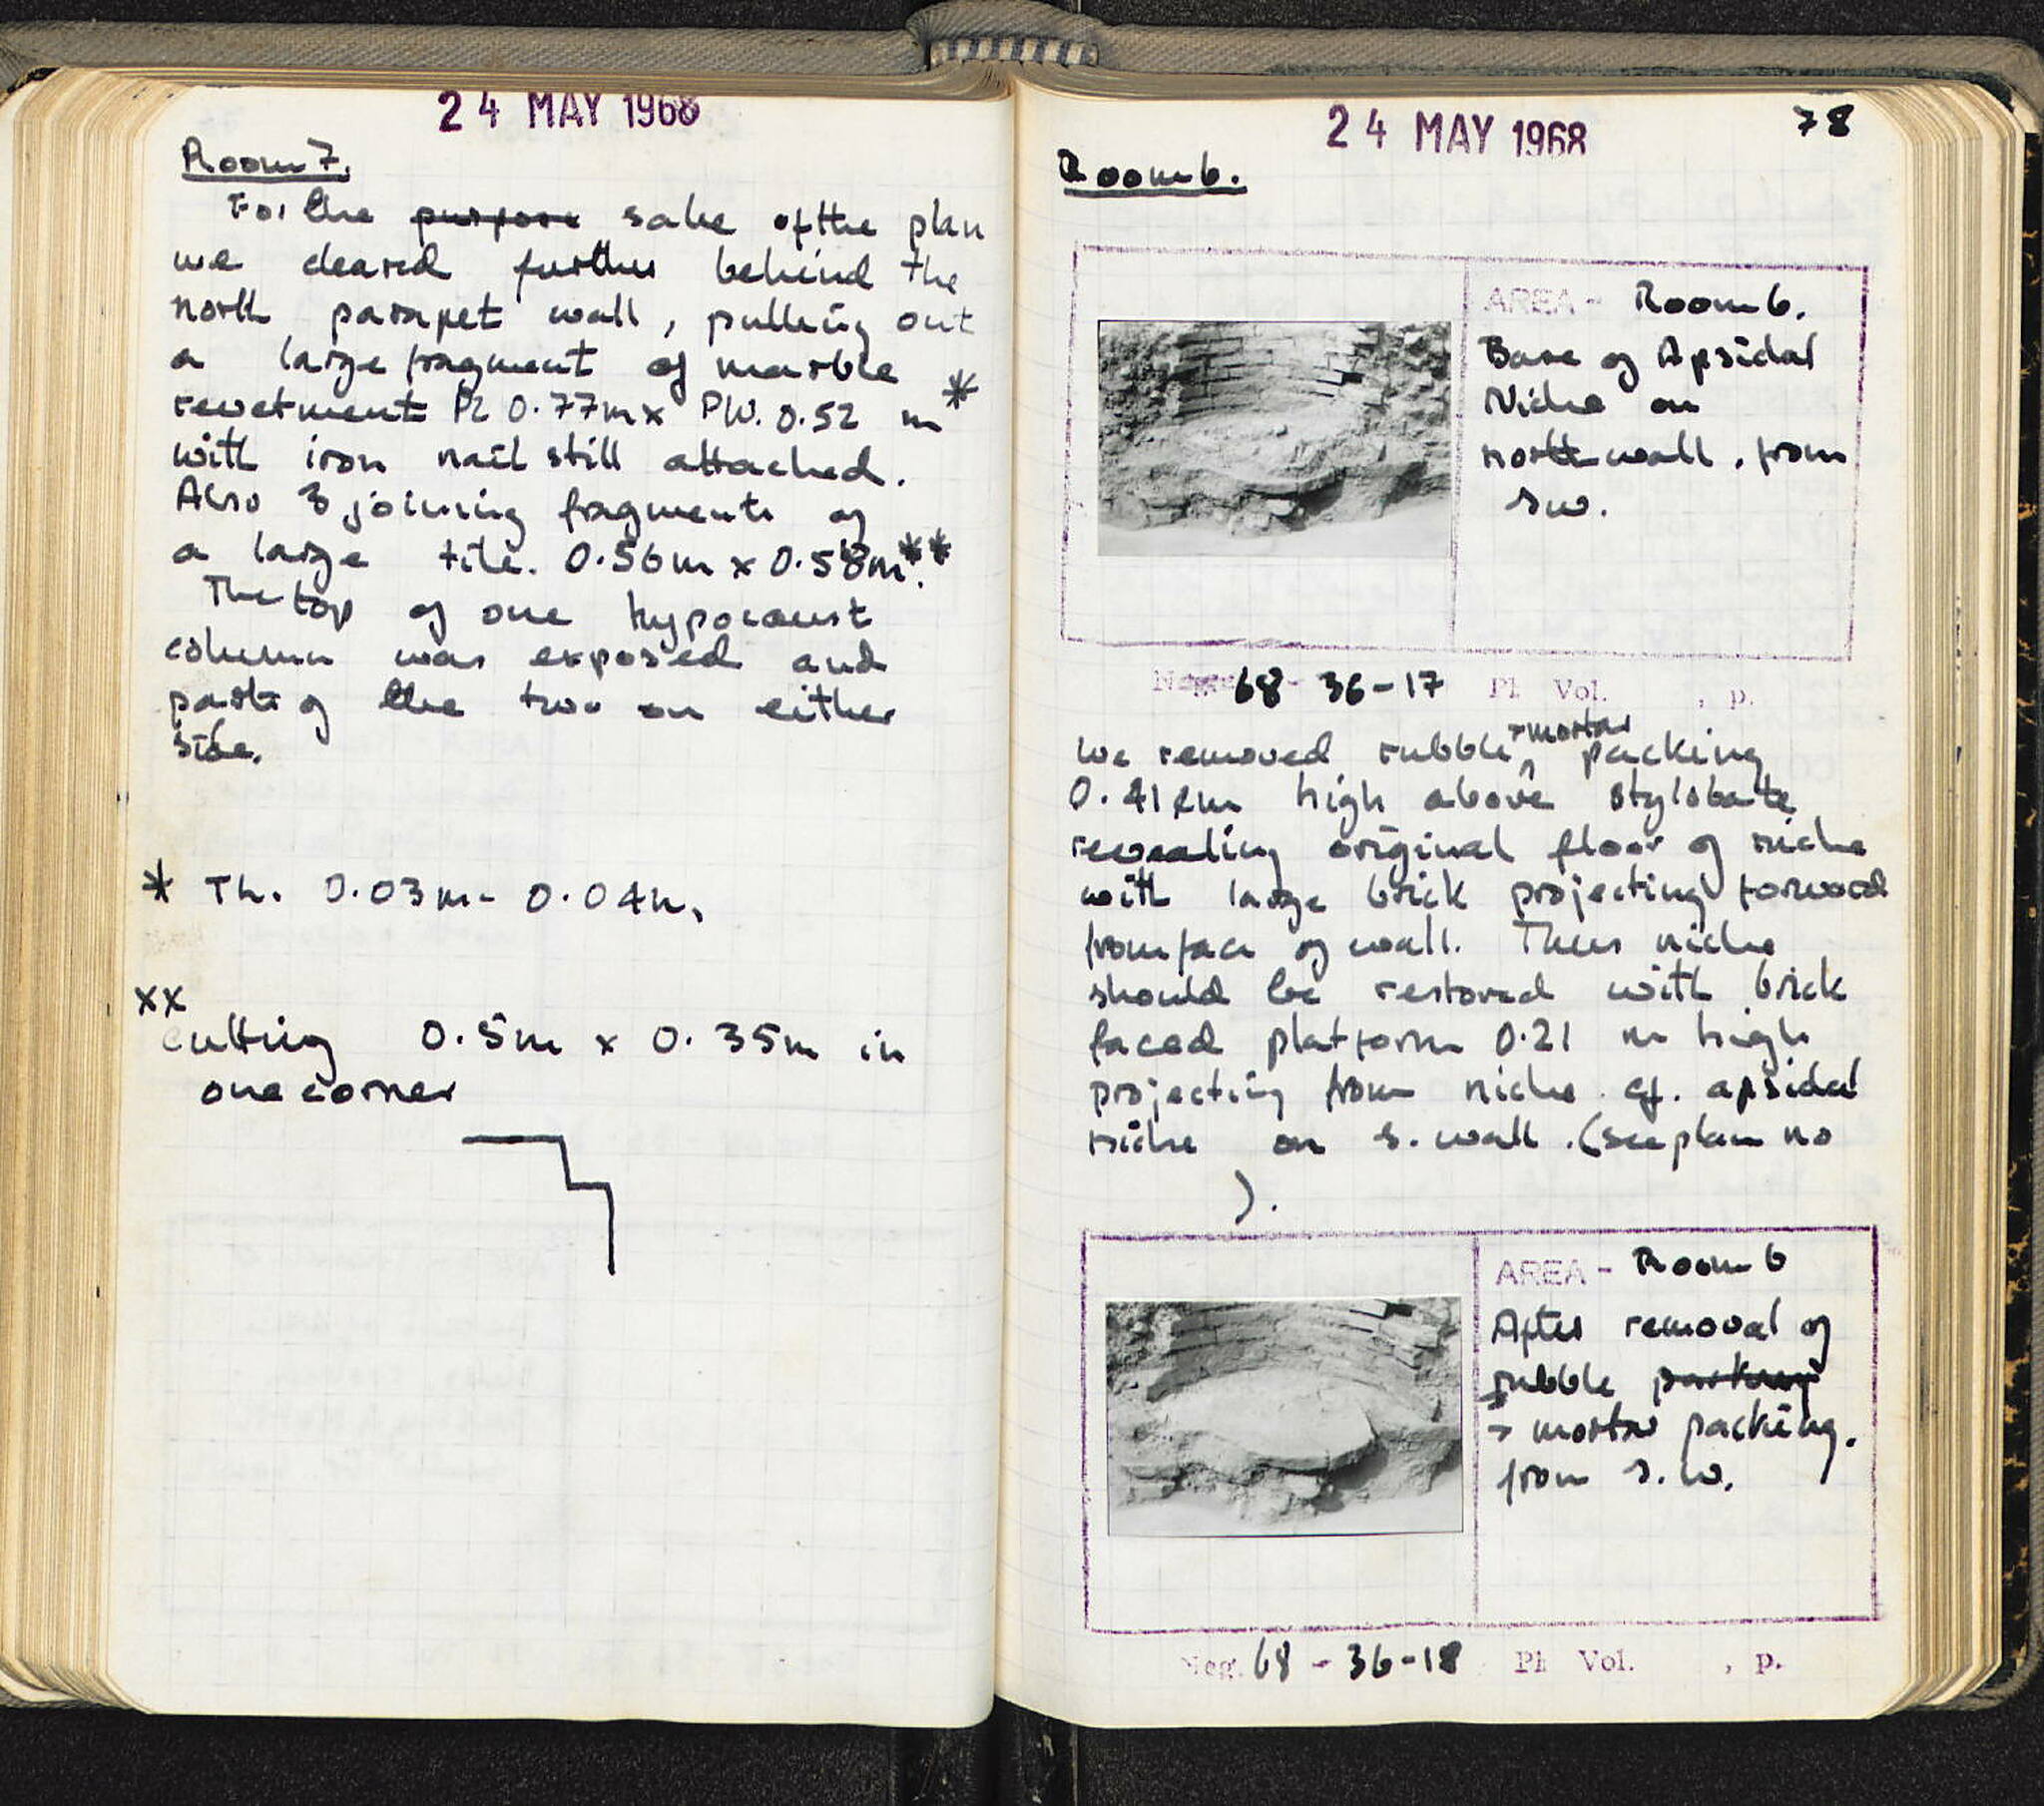 24 MAY 1968
Room 7.
For the purpose sake of the plan
we cleared further behind the
north parapet wall, pulling out
a large fragment of marble
revetment PL 0.77m x PW. 0.52 m*
with iron nail still attached.
Also 3 joining fragments of
a large tile. 0.56m x 0.58m.**
The top of one hypocaust
column was exposed and
parts of the two on either
side.
* Th. 0.03m - 0.04m.
xx
Cutting 0.5m x 0.35m in
one corner
24 MAY 1968
78
Room 6.
AREA - Room 6.
Base of Apsidal
Niche on
north wall, from
SW.
Neg. 68-36-17 Ph Vol. , p.
We removed rubble + mortar packing
0.41 m high above stylobate
revealing original floor of niche
with large brick projecting forward
from face of wall. Thus niche
should be restored with brick
faced platform 0.21 m high
projecting from niche cf. apsidal
niche on S. wall. (see plan no
).
AREA - Room 6
After removal of
rubble packing
+ mortar packing.
from S.W.
Neg. 68-36-18 Ph Vol. , p.